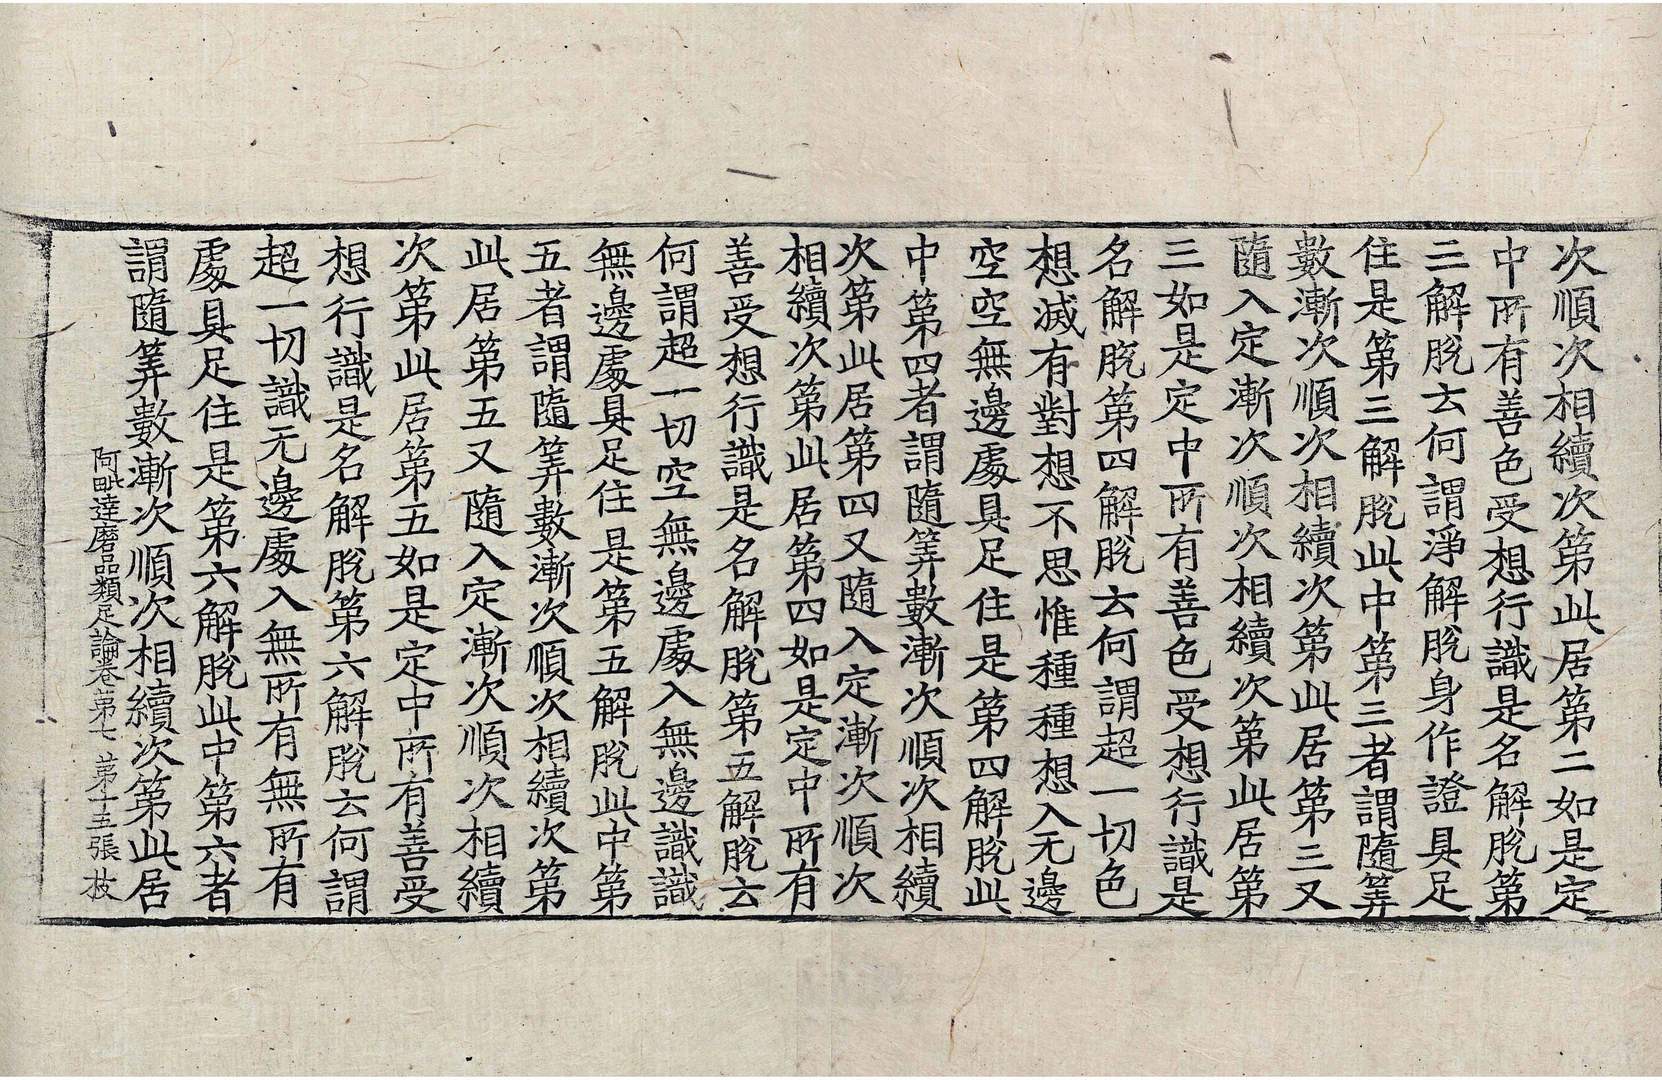 次順次相續次第此居第二如是定
中所有善色受想行識是名解脫第
三解脫云何謂淨解脫身作證具足
住是第三解脫此中第三者謂隨筭
數漸次順次相續次第此居第三又
隨入定漸次順次相續次第此居第
三如是定中所有善色受想行識是
名解脫第四解脫云何謂超一切色
想滅有對想不思惟種種想入无邊
空空無邊處具足住是第四解脫此
中第四者謂隨筭數漸次順次相續
次第此居第四又隨入定漸次順次
相續次第此居第四如是定中所有
善受想行識是名解脫第五解脫云
何謂超一切空無邊處入無邊識識
無邊處具足住是第五解脫此中第
五者謂隨筭數漸次順次相續次第
此居第五又隨入定漸次順次相續
次第此居第五如是定中所有善受
想行識是名解脫第六解脫云何謂
超一切識无邊處入無所有無所有
處具足住是第六解脫此中第六者
謂隨筭數漸次順次相續次第此居
阿毗達磨品類足論卷第七 第十五張 枝